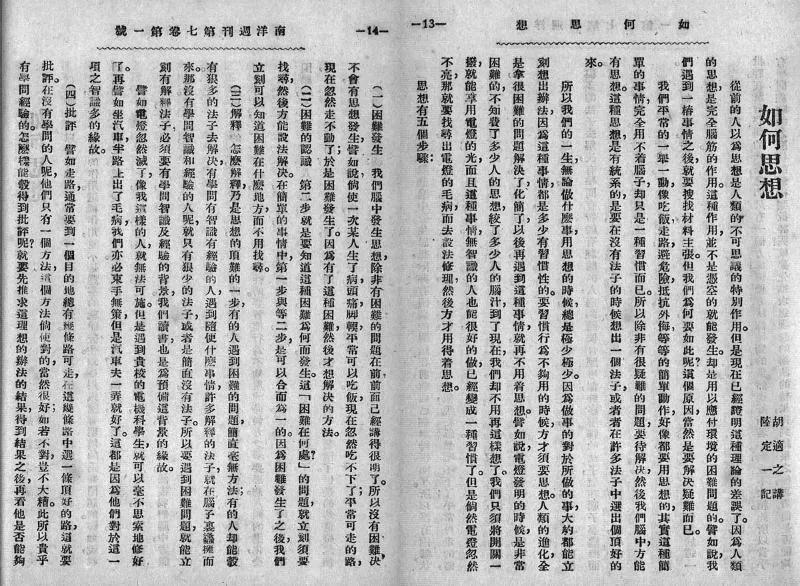 如何思想
—13—
如何思想
胡適之講
陸定一記
從前的人以爲思想是人類的不可思議的特別作用。但是現在已經證明這種理論的差誤了。因爲人類
的思想是完全腦筋的作用。這種作用並不是憑空的就能發生。却是用以應付環境的困難問題的。譬如說我
們遇到一樁事情之後就要搜找材料主張。但我們爲何要如此呢?這個原因當然是要解決疑難而已。
我們平常的一舉一動像吃飯走路避危險抵抗外侮等等的簡單動作好像都要用思想的其實這種簡
單的事情完全用不着腦子却只是一種習慣而已。所以除非有很疑難的問題要待解決然後我們腦中方能
有思想。這種思想是有統系的是要在沒有法子的時候想出一個法子或者者在許多法子中選出個頂好的
來。
所以我們的一生無論做什麽事用思想的時候總是極少極少。因爲做事的對於所做的事大約都能立
刻想出辦法。因爲這種事情都是多少有習慣性的。要習慣行爲不夠用的時候方才須要思想。人類的進化全
是拿很困難的問題解決了化簡了以後再遇到這種事情就再不用着思想。譬如說電燈發明的時候是非常
困難的不知我了多少人的思想絞了多少人的腦汁到了現在我們却不用再這樣想了我們只須將開關一
撥就能享用電燈的光而且這種事情無智識的人也能很好的做。已經變成一種習慣了。但是倘然電燈忽然
不亮那就要找尋出電燈的毛病而去設法修理然後方才用得着思想。
思想有五個步驟:
南洋週刊第七卷第一號
—14—
(一)困難發生 我們腦中發生思想,除非有困難的問題在前前面已經講得很明了。所以沒有困難決
不會有思想發生。譬如說倘使一次某人生了病頭痛脚輭平常可以吃飯現在忽然吃不下了;平常可走的路
現在忽然走不動了;於是困難發生了。因爲有了這種困難然後才想解決的方法。
(二)困難的認識 第二步就是要知道這種困難爲何而發生。這「困難在何處」的問題就立刻須要
找尋,然後方能設法解決。在簡單的事情中第一步與等二步是可以合而爲一的因爲困難發生了之後我們
立刻可以知道困難在什麽地方而不用找尋。
(三)解釋 怎麽解釋乃是思想的頂難的一步。有的人遇到困難的問題簡直毫無方法;有的人却能彀
有很多的法子去解決。有學問有智識有經驗的人遇到隨便什麽事情許多解釋的法子就在腦子裏邊擁而
來;那沒有學問智識和經驗的人呢就只有很少的法子或者是簡直沒有法子。所以要遇到困難問題就能立
刻有解釋法子必須要有學問智識及經驗的背景。我們讀書也是爲預備這背景的緣故。
譬如電燈忽然滅了像我這樣的人就無法可施。但是遇到貴校的電機科學生就可以毫不思索地修好
了。再譬如坐汽車半路上出了毛病我們亦必束手無策。但是汽車夫一弄就好了。這都是因爲他們對於這一
項之智識多的緣故。
(四)批評 譬如走路通常要到一個目的地總有幾條路可走在這幾條路中選一條頂好的路這就要
批評。在沒有學問的人呢他們只有一個方法這個方法倘使對的當然很好;如若不對豈不大糟。此所以貴乎
有學問經驗的。怎麽樣能彀得到批評呢?就要先推求這理想的辦法的結果得到結果之後,再看他是否能夠